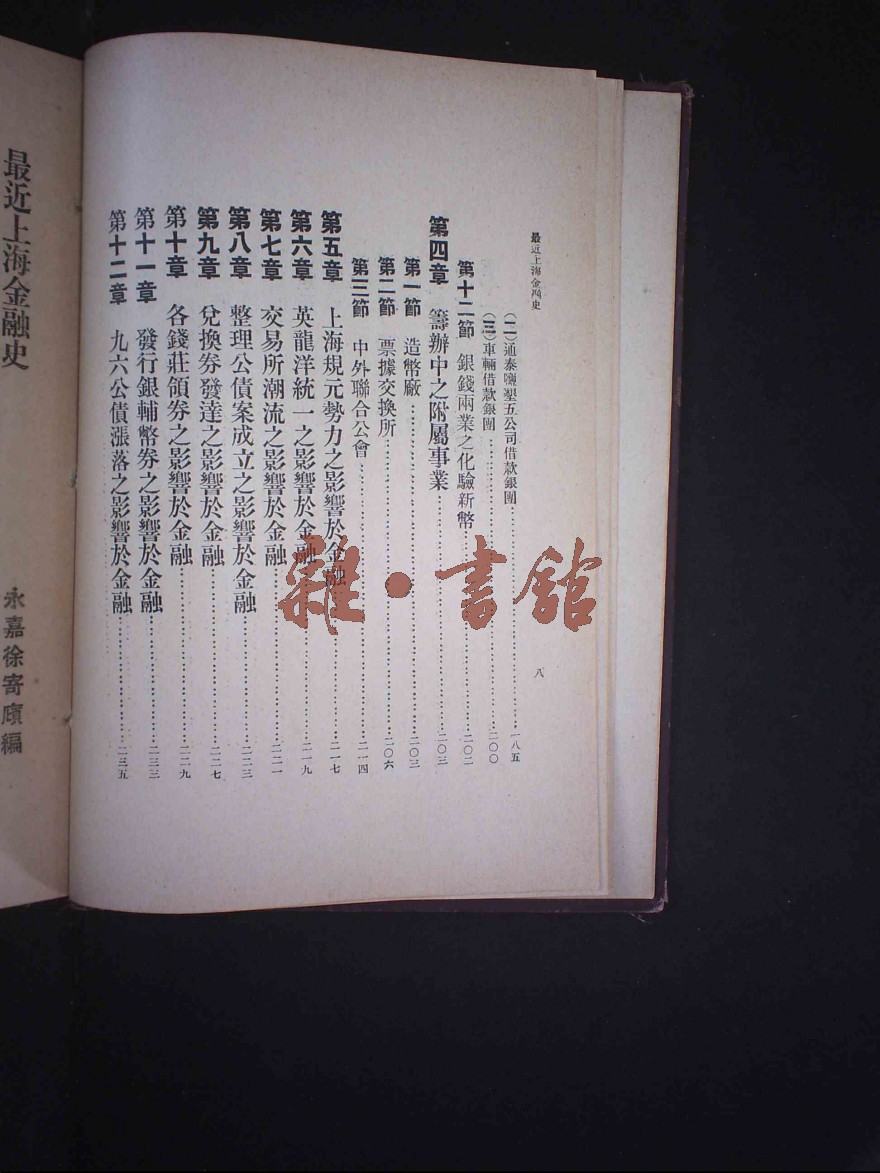 最近上海金融史
八
(二)通泰鹽墾五公司借款銀團……一八五
(三)車輛借款銀團……二〇〇
第十二節 銀錢兩業之化驗新幣……二〇二
第四章 籌辦中之附屬事業……二〇三
第一節 造幣廠……二〇三
第二節 票據交換所……二〇六
第三節 中外聯合公會……二一四
第五章 上海規元勢力之影響於金融……二一七
第六章 英龍洋統一之影響於金融……二一九
第七章 交易所潮流之影響於金融……二二一
第八章 整理公債案成立之影響於金融……二二三
第九章 兌換券發達之影響於金融……二二七
第十章 各錢莊領券之影響於金融……二二九
第十一章 發行銀輔幣券之影響於金融……二三三
第十二章 九六公債漲落之影響於金融……二三五
最近上海金融史
永嘉徐寄廎編
雜·書館